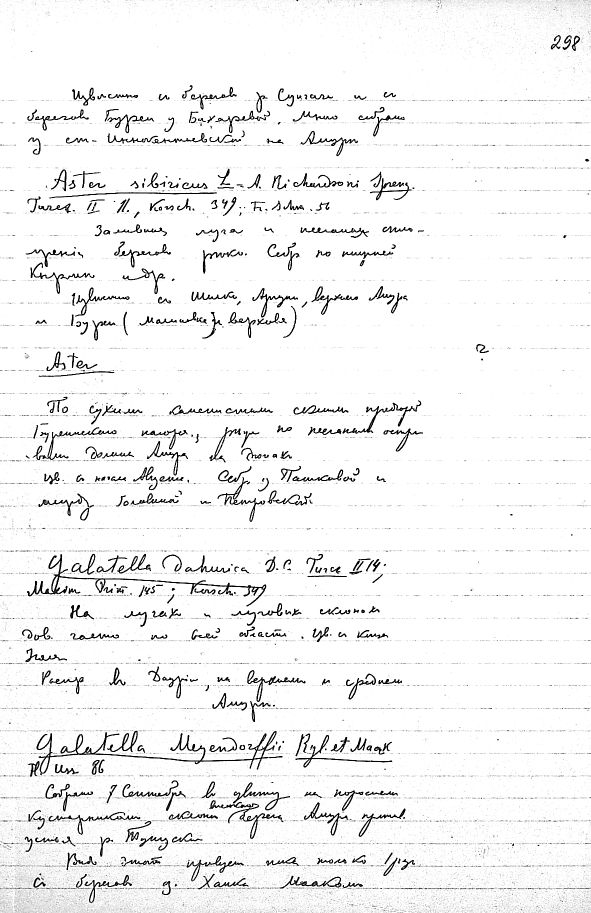 298
Известно съ берегов р. Сунгачи и съ
берегов Буреи у Бахаревой. Мною собрано
у ст. Иннокентьевской на Амуре
Aster sibiricus L = A. Richardsoni Spreng.
Turcz. II 11., Korsch. 349; Fr. Schm. 56
Заливные луга и песчаные
берегов рек. Собр по нижней
и др.
Известно съ Шилки, Аргуни, верхнего Амура
и Буреи (верховья)
Aster
?
По сухим каменистым склонам
Буреинского нагорья, по песчаным остро-
вам долины Амура на
Цв. съ начала Августа. Собр. у Пашковой и
между Головиной и Петровской.
Galatella Dahurica D.C. Turcz II 14;
Maxim Prim. 145; Korsch. 349
На лугах и луговых склонах
дов. часто по всей области. Цв. съ конца
Июля
Распр въ Даурии, на верхнем и среднем
Амуре.
Galatella Meyendorffii Rgl. et Maak
Fl Uss 86
Собрано 7 Сентября въ цвету на поросшем
кустарниками, склоне берега Амура против
устья р. Тунгуски
Вид этот только
съ берегов о. Ханка Мааком